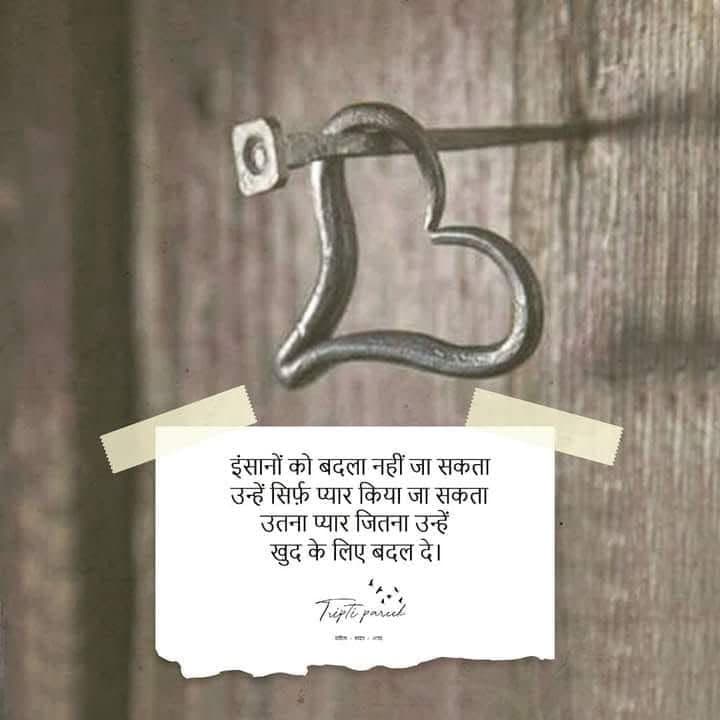 इंसानों को बदला नहीं जा सकता
उन्हें सिर्फ़ प्यार किया जा सकता
उतना प्यार जितना उन्हें
खुद के लिए बदल दे।
Tripti pareek